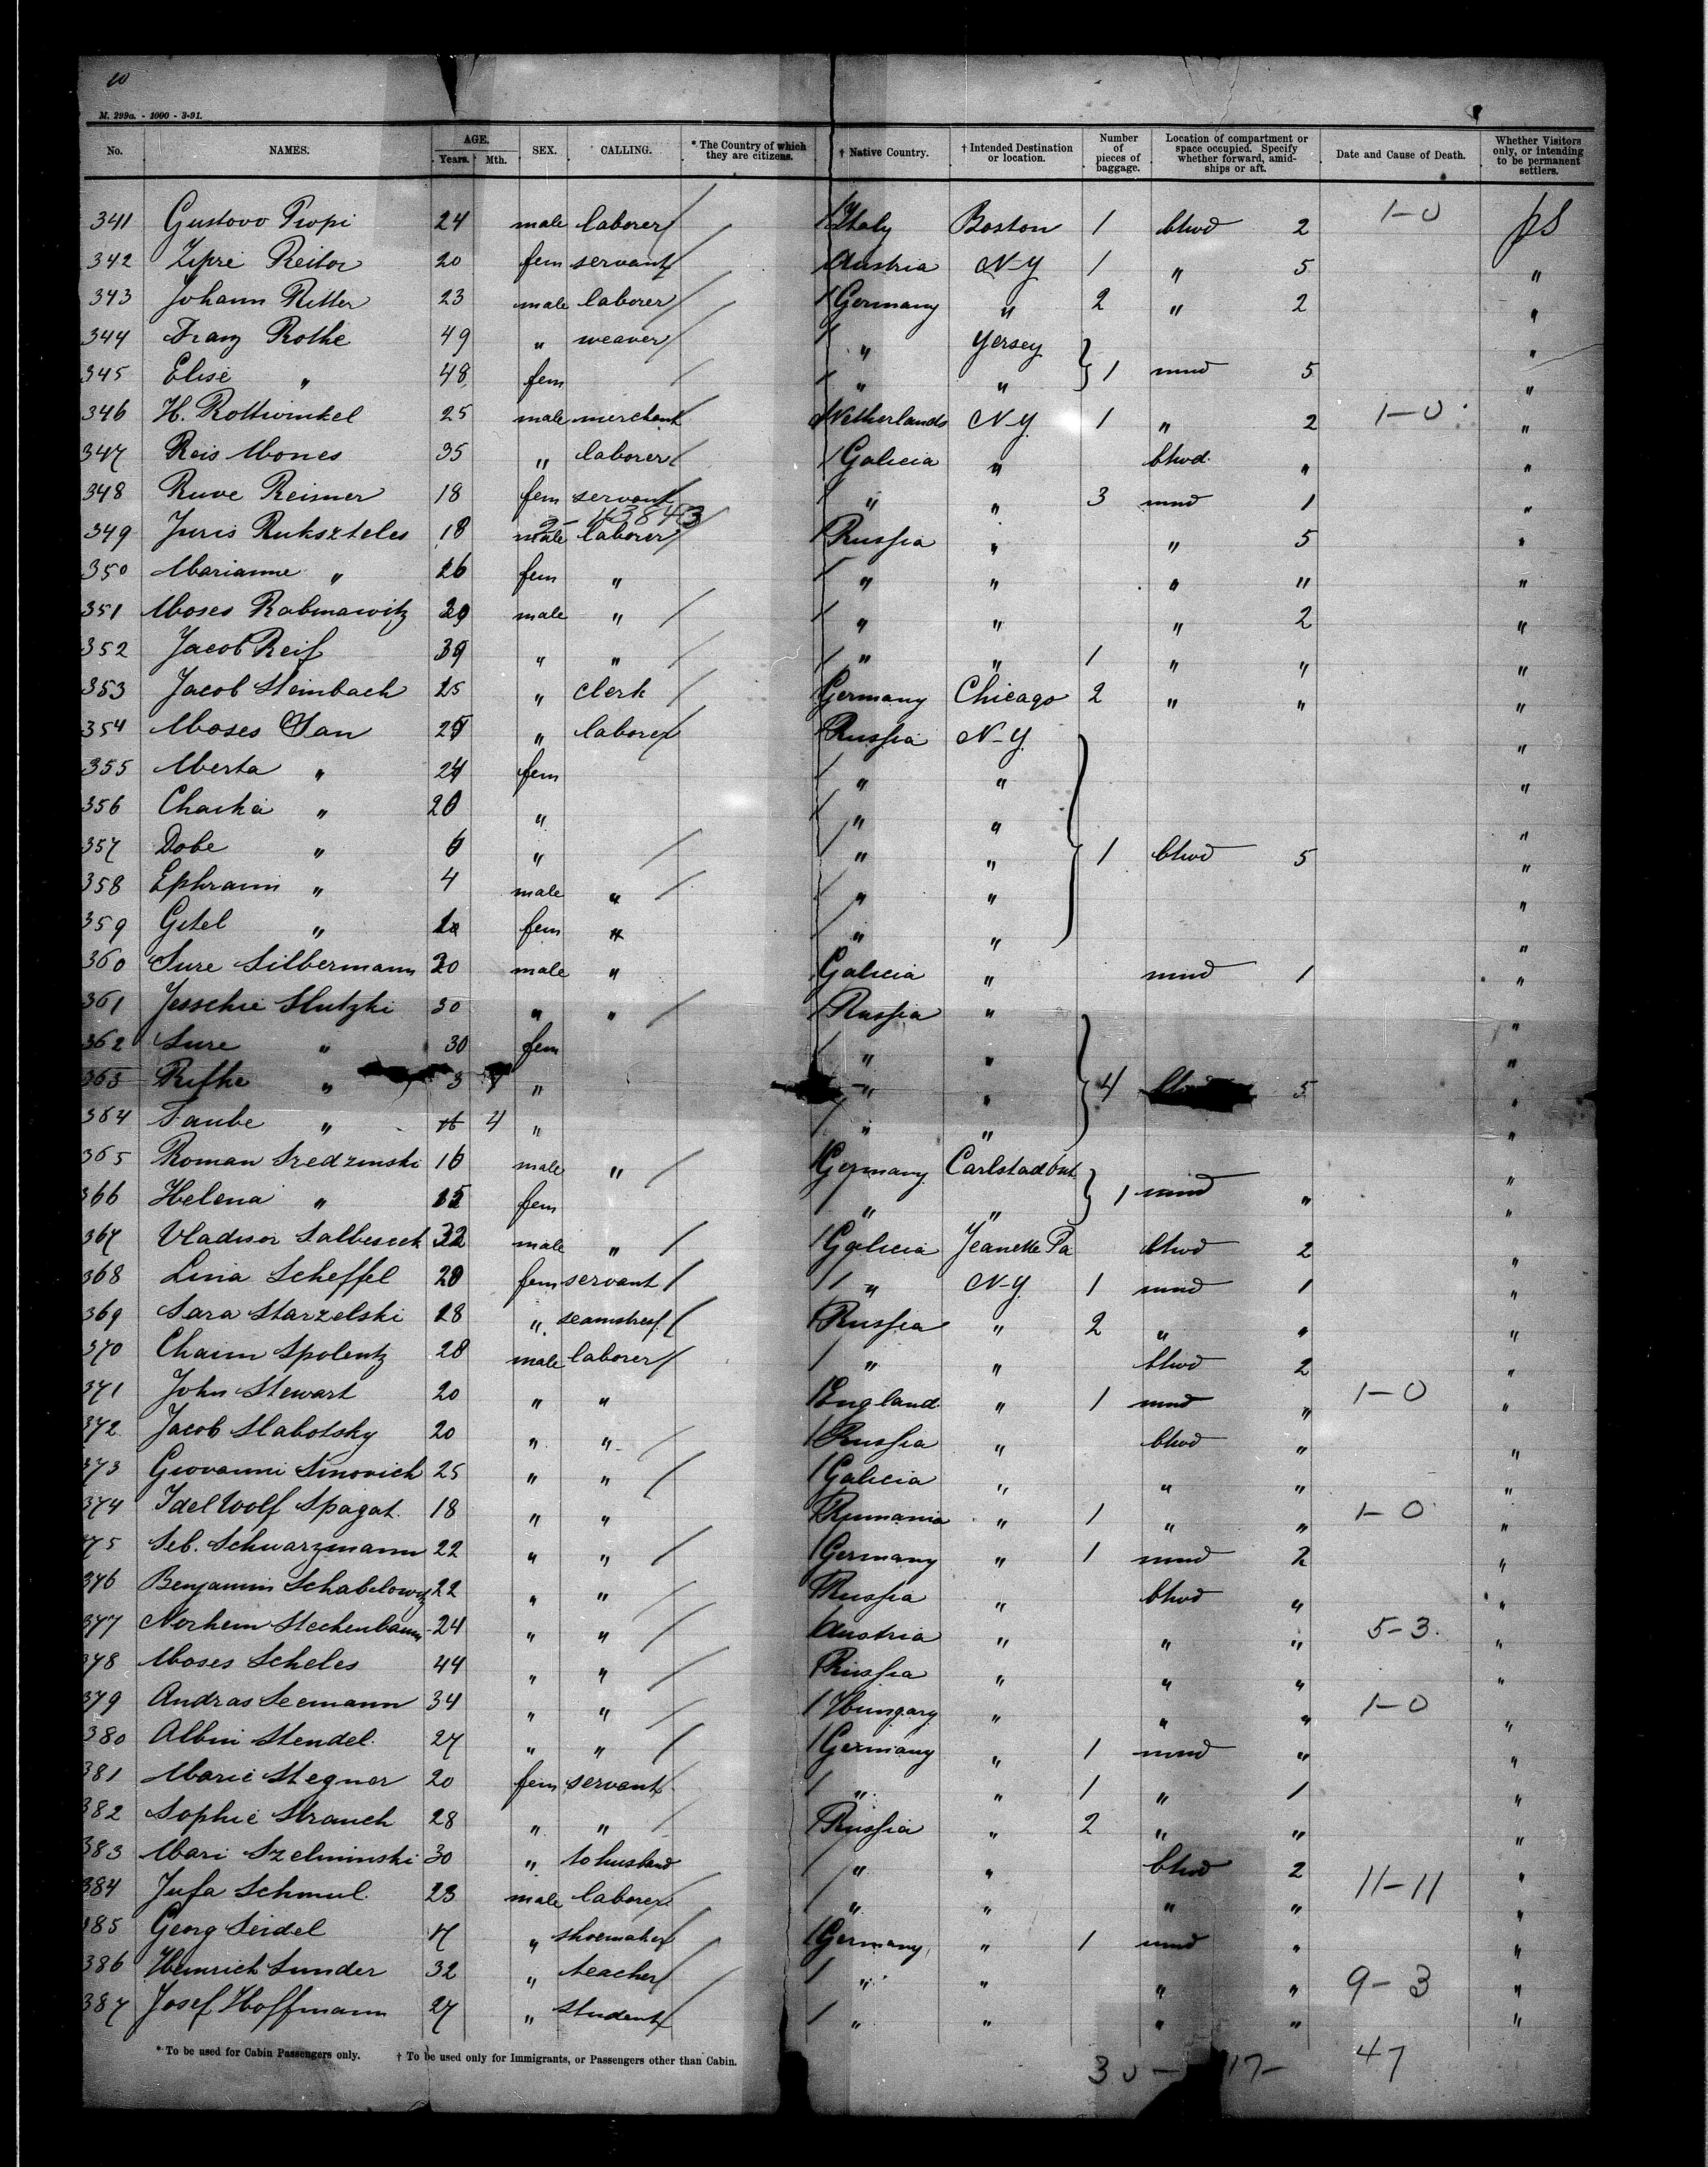 10
M. 299a. - 1000 - 3-91.
No. NAMES. AGE. Years. Mth. SEX. CALLING. * The Country of which they are citizens. † Native Country. † Intended Destination or location. Number of pieces of baggage. Location of compartment or space occupied. Specify whether forward, amidships or aft. Date and Cause of Death. Whether Visitors only, or intending to be permanent settlers.
341 Gustovo Propi 24 male laborer / 1 Italy Boston 1 btwd 2 1-0 ps
342 Zipre Reitor 20 fem servant / 1 Austria N-Y 1 " 5 "
343 Johann Ritter 23 male laborer / 1 Germany " 2 " 2 "
344 Franz Rothe 49 " weaver / 1 " Yersey "
345 Elise " 48 fem / 1 " " 1 mnd 5 "
346 H. Rottwinkel 25 male merchant Netherlands N-Y 1 " 2 1-0 "
347 Reis Mones 35 " laborer / 1 Galicia " btwd. " "
348 Ruve Reisner 18 fem servant / 1 " " 3 mnd 1 "
2- 43843
349 Juris Rukszteles 18 male laborer / 1 Russia " " 5 "
350 Marianne " 26 fem " 1 " " " " "
351 Moses Rabinawitz 39 male " / 1 " " " 2 "
352 Jacob Reif 39 " " / 1 " " 1 " " "
353 Jacob Steinbach 25 " clerk / Germany Chicago 2 " " "
354 Moses San 25 " laborer / Russia N-Y "
355 Merta " 24 fem 1 " " "
356 Chaska " 20 " 1 " " "
357 Dobe " 6 " / 1 " " 1 btwd 5 "
358 Ephraim " 4 male " / 1 " " "
359 Gitel " fem " 1 " " "
360 Sure Silbermann 20 male " Galicia " mnd 1 "
361 Jesschie Slutzki 30 " " / 1 Russia " "
362 Sure " 30 fem 1 " " "
363 Rifke " 3 " " " 4 5 "
364 Taube " 4 " 1 " " "
365 Roman Sredzinski 16 male " / 1 Germany Carlstadt "
366 Helena " 15 fem 1 " " 1 mnd " "
367 Vladisor Salbeseck 32 male " / 1 Galicia Jeanette Pa btwd 2 "
368 Lina Scheffel 20 fem servant / 1 " N-Y 1 mnd 1 "
369 Sara Starzelski 28 " seamstress / 1 Russia " 2 " " "
370 Chaim Spolentz 28 male laborer / 1 " " btwd 2 "
371 John Stewart 20 " " 1 England " 1 mnd " 1-0 "
372 Jacob Slabotsky 20 " " / 1 Russia " btwd " "
373 Giovanni Sinovich 25 " " / 1 Galicia " " " "
374 Idel Wolf Spagat 18 " " 1 Rumania " 1 " " 1-0 "
375 Seb. Schwarzmann 22 " " / 1 Germany " 1 mnd 2 "
376 Benjamin Schabelowitz 22 " " / Russia " btwd " "
377 Norhem Stechenbaum 24 " " / 1 Austria " " " 5-3. "
378 Moses Scheles 44 " " / 1 Russia " " " "
379 Andras Seemann 34 " " / 1 Hungary " " " 1-0 "
380 Albin Stendel 27 " " / 1 Germany " 1 mnd " "
381 Marie Stegner 20 fem servant / 1 " " 1 " 1 "
382 Sophie Strauch 28 " " / 1 Russia " 2 " " "
383 Mari Szelminski 30 " to husband 1 " " btwd 2 "
384 Jufa Schmul 23 male laborer / 1 " " " " 11-11 "
385 Georg Seidel 17 " shoemaker / 1 Germany " 1 mnd " "
386 Heinrich Sunder 32 " teacher / 1 " " " " 9-3 "
387 Josef Hoffmann 27 " student / 1 " " " " "
* To be used for Cabin Passengers only. † To be used only for Immigrants, or Passengers other than Cabin.
30- 17- 47